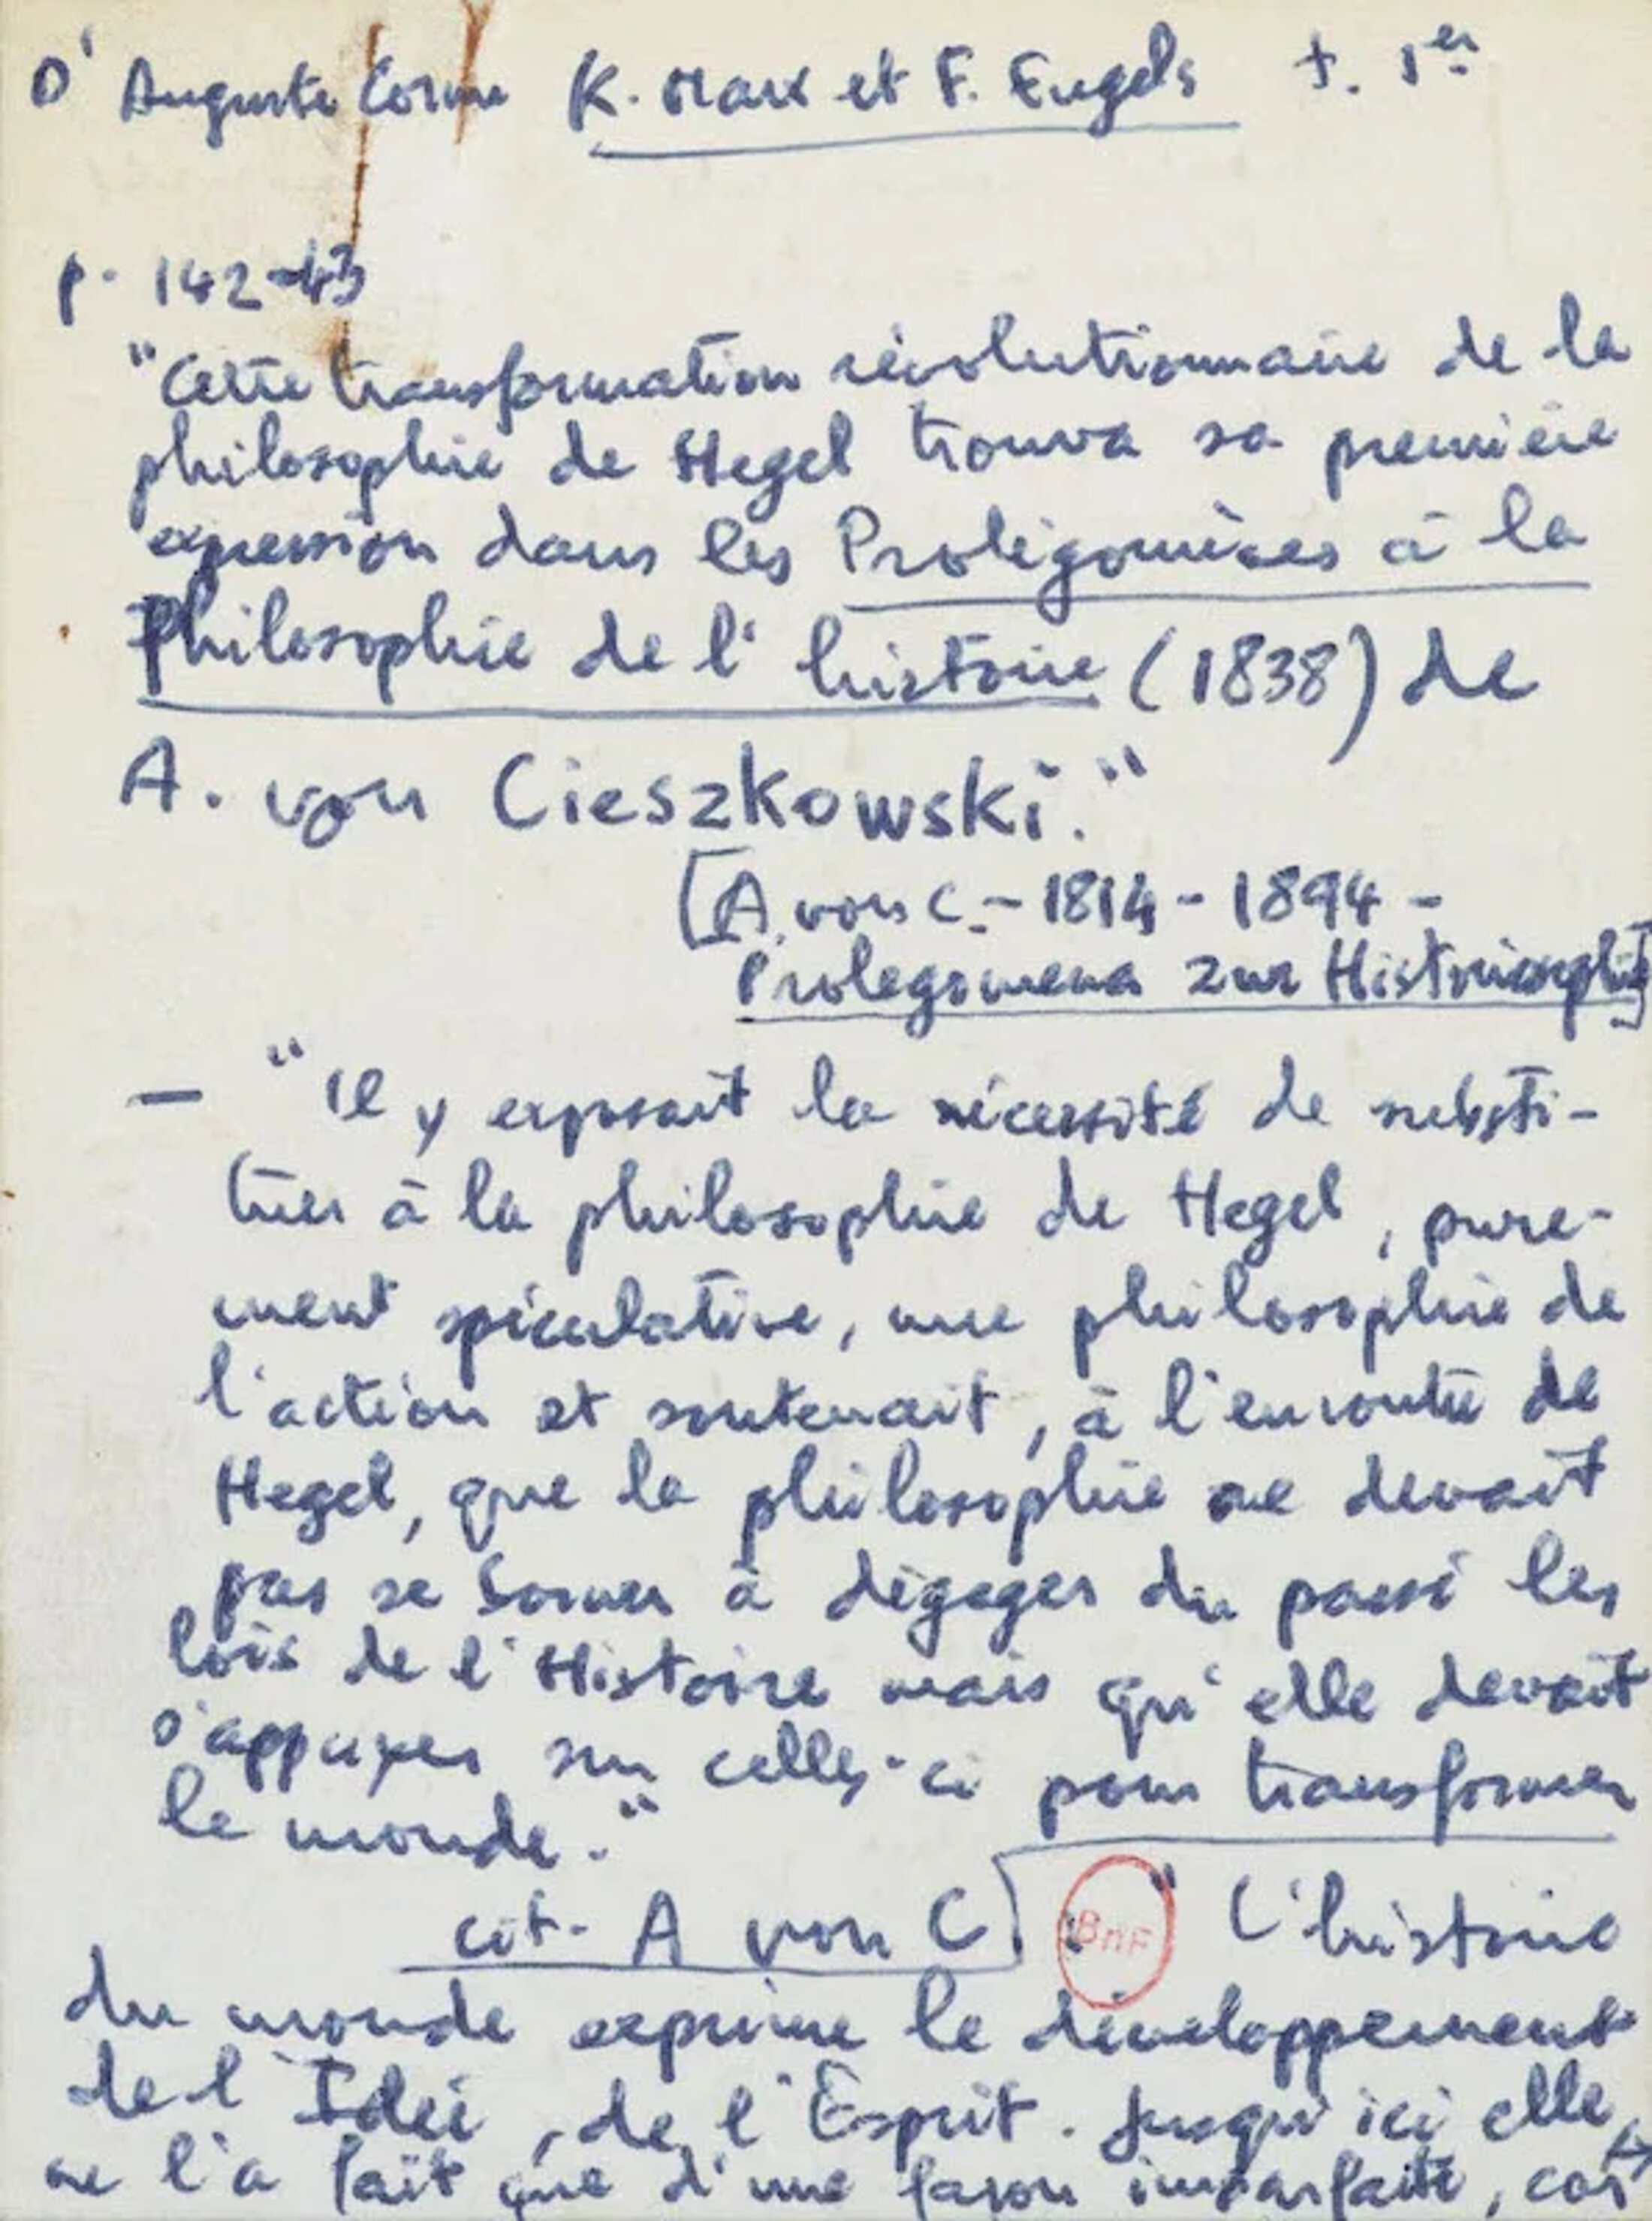 D' Auguste Cornu K. Marx et F. Engels t. 1er
p. 142-43
"Cette transformation révolutionnaire de la
philosophie de Hegel trouva sa première
expression dans les Prolégomènes à la
Philosophie de l'histoire (1838) de
A. von Cieszkowski."
[A. von C. - 1814 - 1894 -
Prolegomena zur Historiosophie]
— "Il y exposait la nécessité de substi-
tuer à la philosophie de Hegel, pure-
ment spéculative, une philosophie de
l'action et soutenait, à l'encontre de
Hegel, que la philosophie ne devait
pas se borner à dégager du passé les
lois de l'Histoire mais qu'elle devait
s'appuyer sur celles-ci pour transformer
le monde."
cit. A von C] : "L'histoire
BnF
du monde exprime le développement
de l'Idée, de l'Esprit. Jusqu'ici elle
ne l'a fait que d'une façon imparfaite, car →